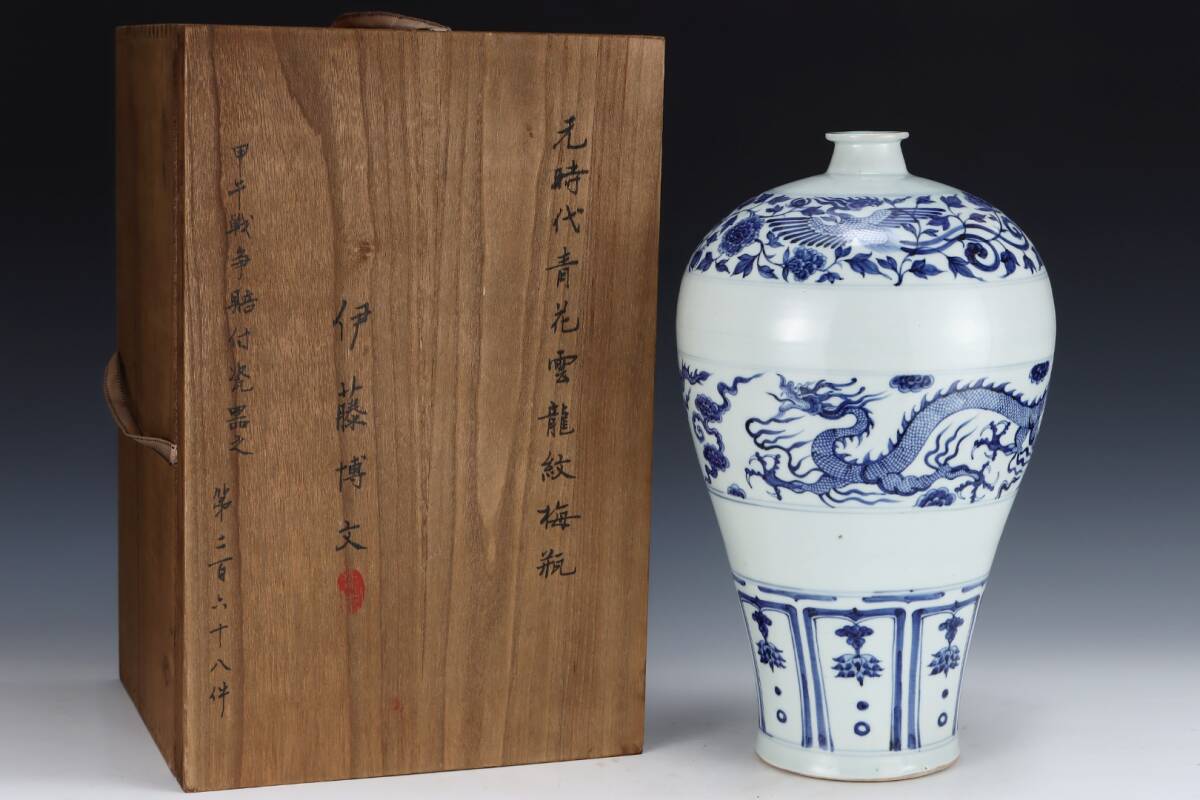 元時代青花雲龍紋梅瓶
伊藤博文
甲午戦争賠付瓷器之
第二百六十八件